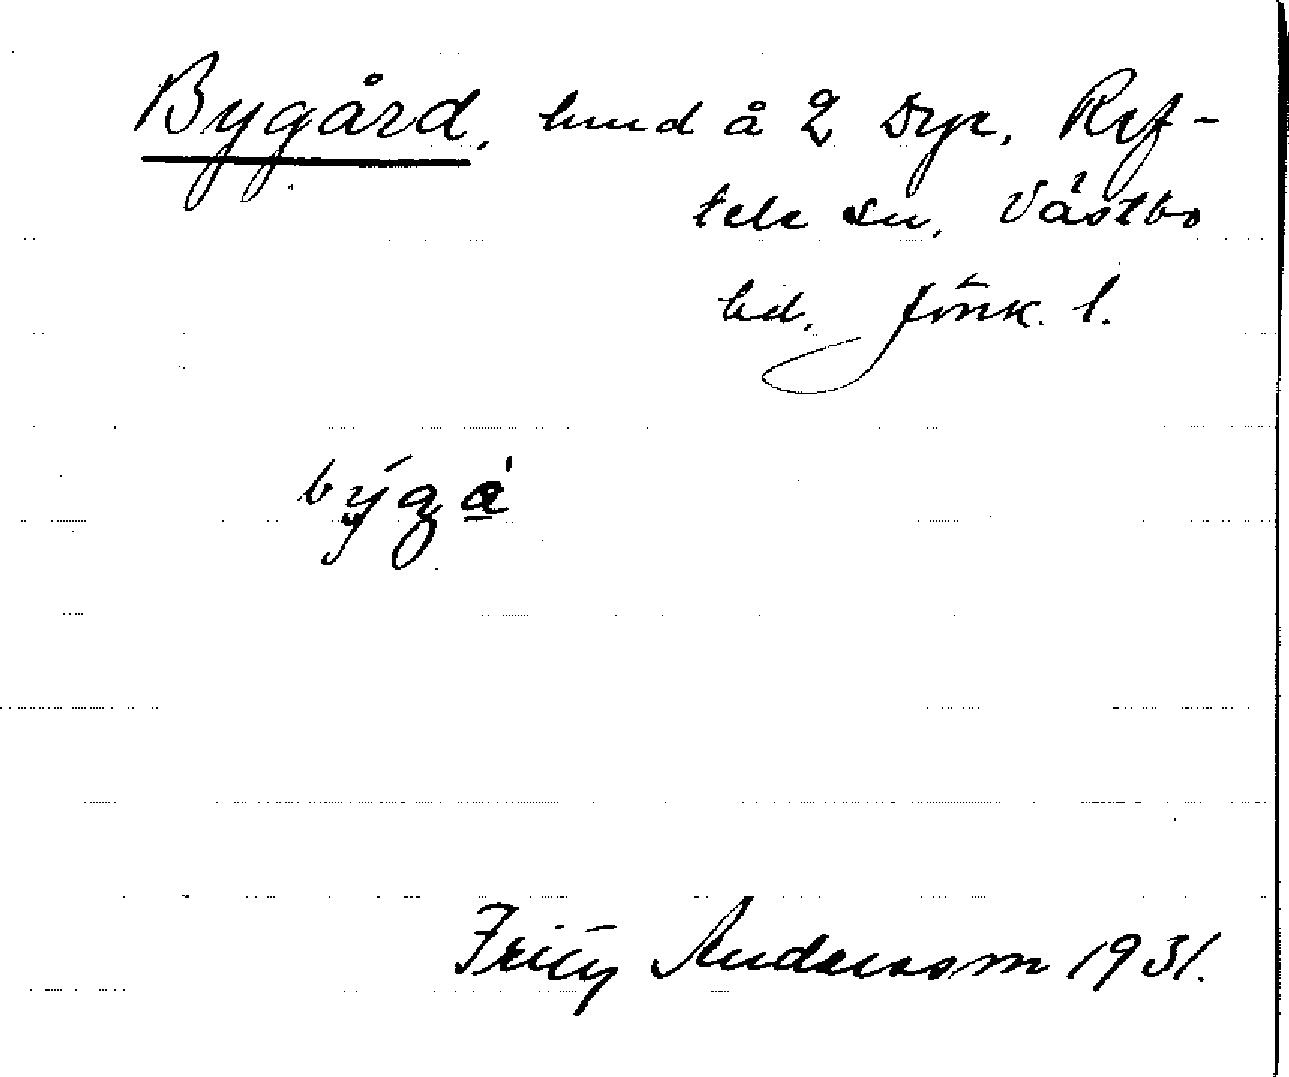 Bygård, hmd å 2 Dyr, Ref-
tele sn, Västbo
hd, Jönk. l.
býgá
Frity Andersson 1931.